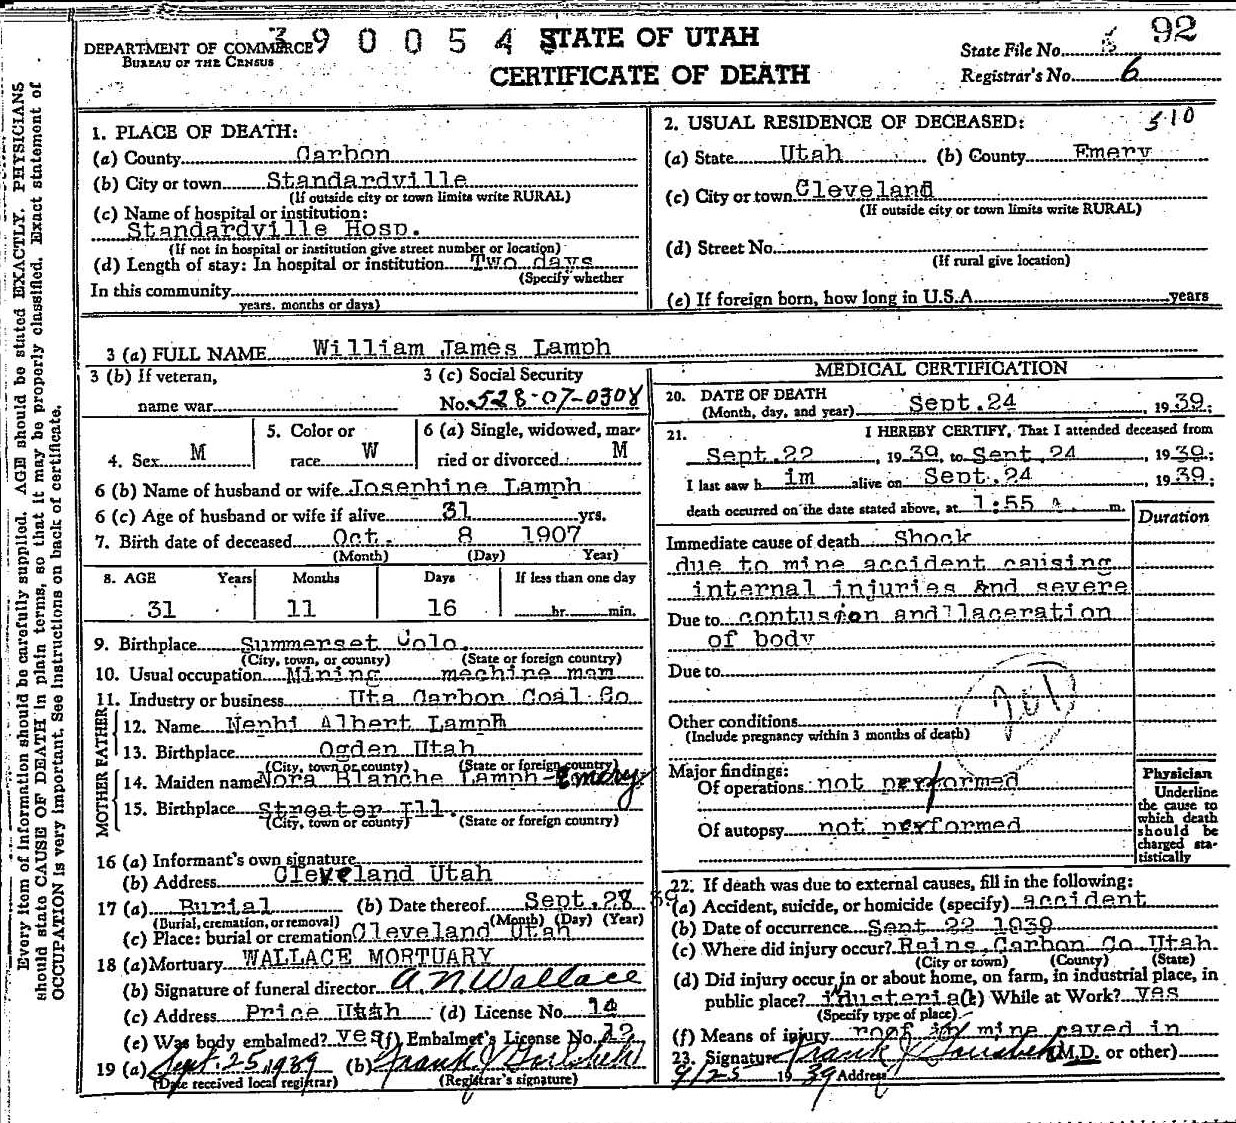 3 9 0 0 5 4 3
STATE OF UTAH
CERTIFICATE OF DEATH
DEPARTMENT OF COMMERCE
BUREAU OF THE CENSUS
State File No. 92
Registrar's No. 6
Every item of information should be carefully supplied. AGE should be stated EXACTLY. PHYSICIANS
should state CAUSE OF DEATH in plain terms, so that it may be properly classified. Exact statement of
OCCUPATION is very important. See instructions on back of certificate.
1. PLACE OF DEATH:
(a) County Carbon
(b) City or town Standardville
(If outside city or town limits write RURAL)
(c) Name of hospital or institution:
Standardville Hosp.
(If not in hospital or institution give street number or location)
(d) Length of stay: In hospital or institution Two days
(Specify whether
In this community
years, months or days)
2. USUAL RESIDENCE OF DECEASED: 510
(a) State Utah (b) County Emery
(c) City or town Cleveland
(If outside city or town limits write RURAL)
(d) Street No.
(If rural give location)
(e) If foreign born, how long in U.S.A. years
3 (a) FULL NAME William James Lamph
3 (b) If veteran,
name war
3 (c) Social Security
No. 528-07-0308
4. Sex M
5. Color or
race W
6 (a) Single, widowed, mar-
ried or divorced M
6 (b) Name of husband or wife Josephine Lamph
6 (c) Age of husband or wife if alive 31 yrs.
7. Birth date of deceased Oct. 8 1907
(Month) (Day) Year)
8. AGE Years Months Days If less than one day
31 11 16 hr. min.
9. Birthplace Summerset Colo.
(City, town, or county) (State or foreign country)
10. Usual occupation Mining mechine man
11. Industry or business Uta Carbon Coal Co
FATHER
12. Name Nephi Albert Lamph
13. Birthplace Ogden Utah
(City, town or county) (State or foreign country)
MOTHER
14. Maiden name Nora Blanche Lamph- Emery
15. Birthplace Streater Ill.
(City, town or county) (State or foreign country)
16 (a) Informant's own signature
(b) Address Cleveland Utah
17 (a) Burial (b) Date thereof Sept. 28 39
(Burial, cremation, or removal) (Month) (Day) (Year)
(c) Place: burial or cremation Cleveland Utah
18 (a) Mortuary WALLACE MORTUARY
(b) Signature of funeral director A.N. Wallace
(c) Address Price Utah (d) License No. 14
(e) Was body embalmed? yes (f) Embalmer's License No. 12
19 (a) Sept. 25, 1939 (b) Frank J
(Date received local registrar) (Registrar's signature)
MEDICAL CERTIFICATION
20. DATE OF DEATH
(Month, day, and year) Sept. 24, 1939;
21. I HEREBY CERTIFY, That I attended deceased from
Sept. 22, 1939, to Sept. 24, 1939;
I last saw h im alive on Sept. 24, 1939;
death occurred on the date stated above, at 1:55 a. m.
Duration
Immediate cause of death Shock
due to mine accident causing
internal injuries and severe
Due to contusion and laceration
of body
Due to
Other conditions
(Include pregnancy within 3 months of death)
Major findings:
Of operations not performed
Of autopsy not performed
Physician
Underline
the cause to
which death
should be
charged sta-
tistically
22. If death was due to external causes, fill in the following:
(a) Accident, suicide, or homicide (specify) accident
(b) Date of occurrence Sept 22 1939
(c) Where did injury occur? Rains, Carbon Co Utah
(City or town) (County) (State)
(d) Did injury occur in or about home, on farm, in industrial place, in
public place? industerial (e) While at Work? yes
(Specify type of place)
(f) Means of injury roof in mine caved in
23. Signature Frank J (M.D. or other)
9/25 1939 Address